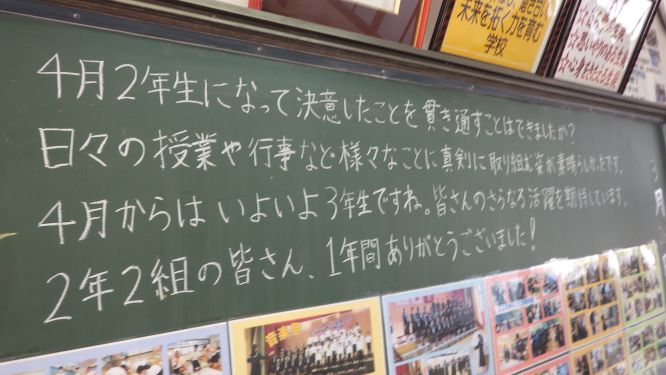 未来を拓く力を育む
学校
4月2年生になって決意したことを貫き通すことはできましたか?
日々の授業や行事など様々なことに真剣に取り組む姿が素晴らしかったです。
4月からはいよいよ3年生ですね。皆さんのさらなる活躍を期待しています。
2年2組の皆さん、1年間ありがとうございました!
3
月
音楽祭